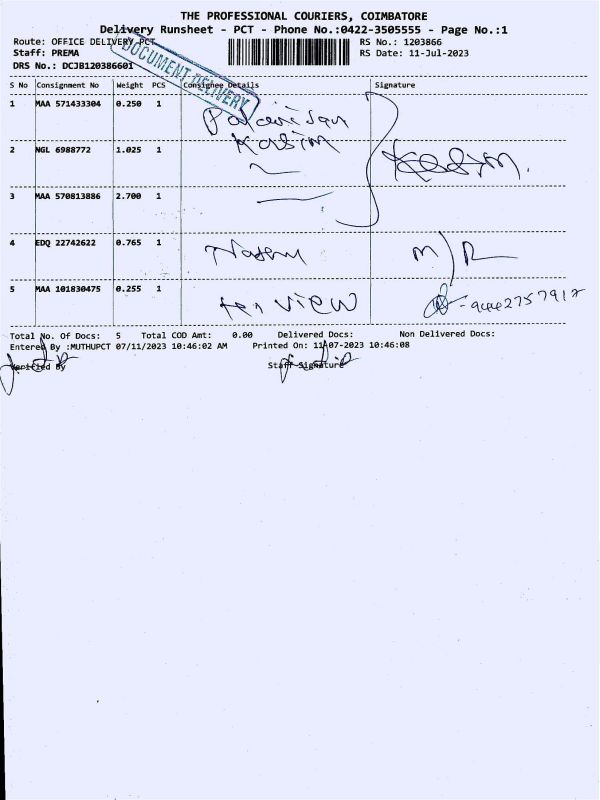 THE PROFESSIONAL COURIERS, COIMBATORE
Delivery Runsheet - PCT - Phone No.:0422-3505555 - Page No.:1
Route: OFFICE DELIVERY PCT RS No.: 1203866
Staff: PREMA RS Date: 11-Jul-2023
DRS No.: DCJB120386601
DOCUMENT DELIVERY
S No Consignment No Weight PCS Consignee Details Signature
1 MAA 571433304 0.250 1
2 NGL 6988772 1.025 1
3 MAA 570813886 2.700 1
4 EDQ 22742622 0.765 1 M/R
5 MAA 101830475 0.255 1 ten VIEW
Total No. Of Docs: 5 Total COD Amt: 0.00 Delivered Docs: Non Delivered Docs:
Entered By :MUTHUPCT 07/11/2023 10:46:02 AM Printed On: 11-07-2023 10:46:08
Verified By Staff Signature